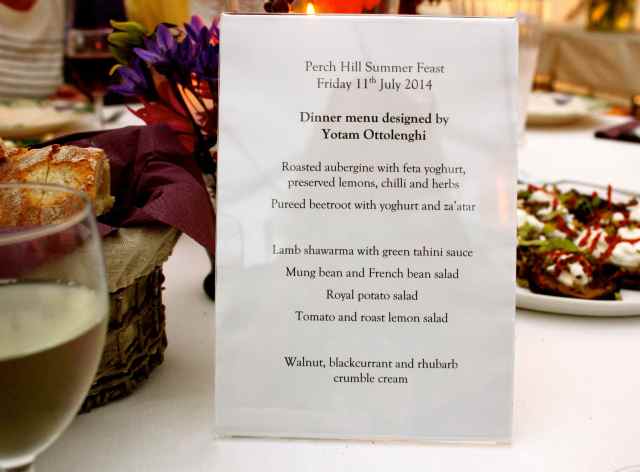 Perch Hill Summer Feast
Friday 11th July 2014
Dinner menu designed by
Yotam Ottolenghi
Roasted aubergine with feta yoghurt,
preserved lemons, chilli and herbs
Pureed beetroot with yoghurt and za'atar
Lamb shawarma with green tahini sauce
Mung bean and French bean salad
Royal potato salad
Tomato and roast lemon salad
Walnut, blackcurrant and rhubarb
crumble cream